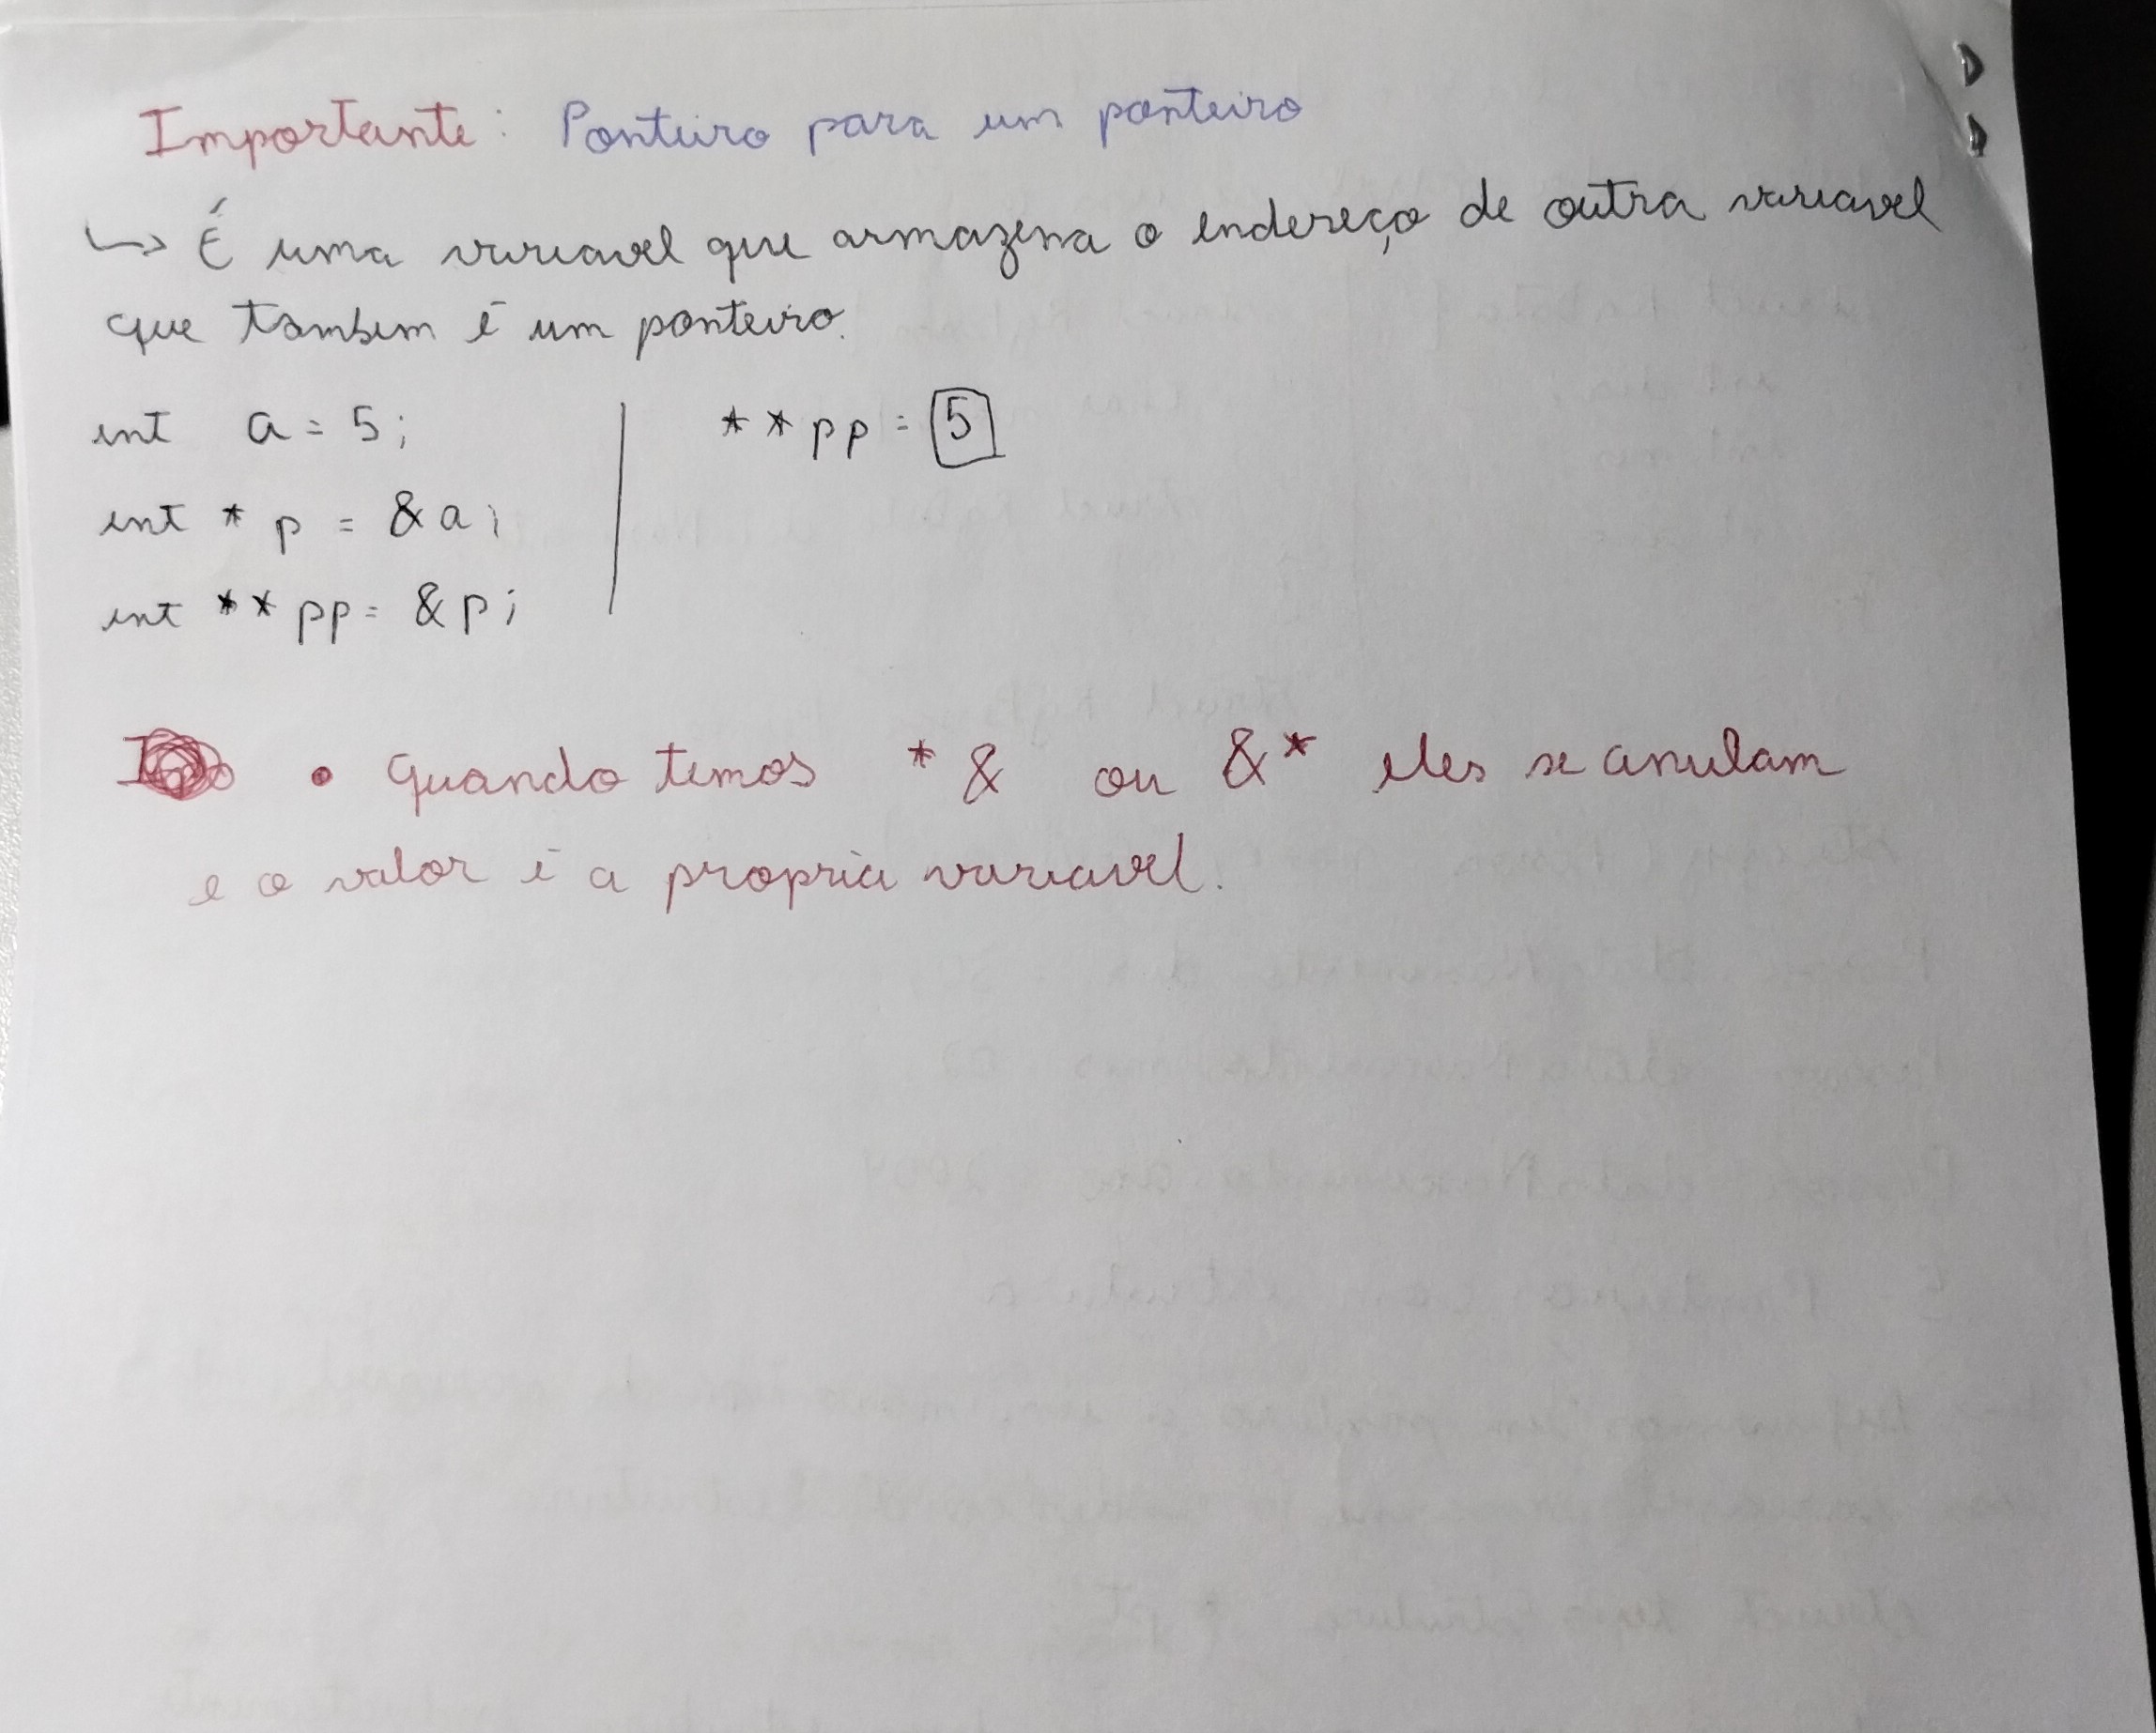 Importante: Ponteiro para um ponteiro
↳ É uma variavel que armazena o endereço de outra variavel
que tambem é um ponteiro.
int a = 5; | **pp = 5
int * p = &a;
int ** pp = &p;
• Quando temos *& ou &* eles se anulam
e o valor é a propria variavel.